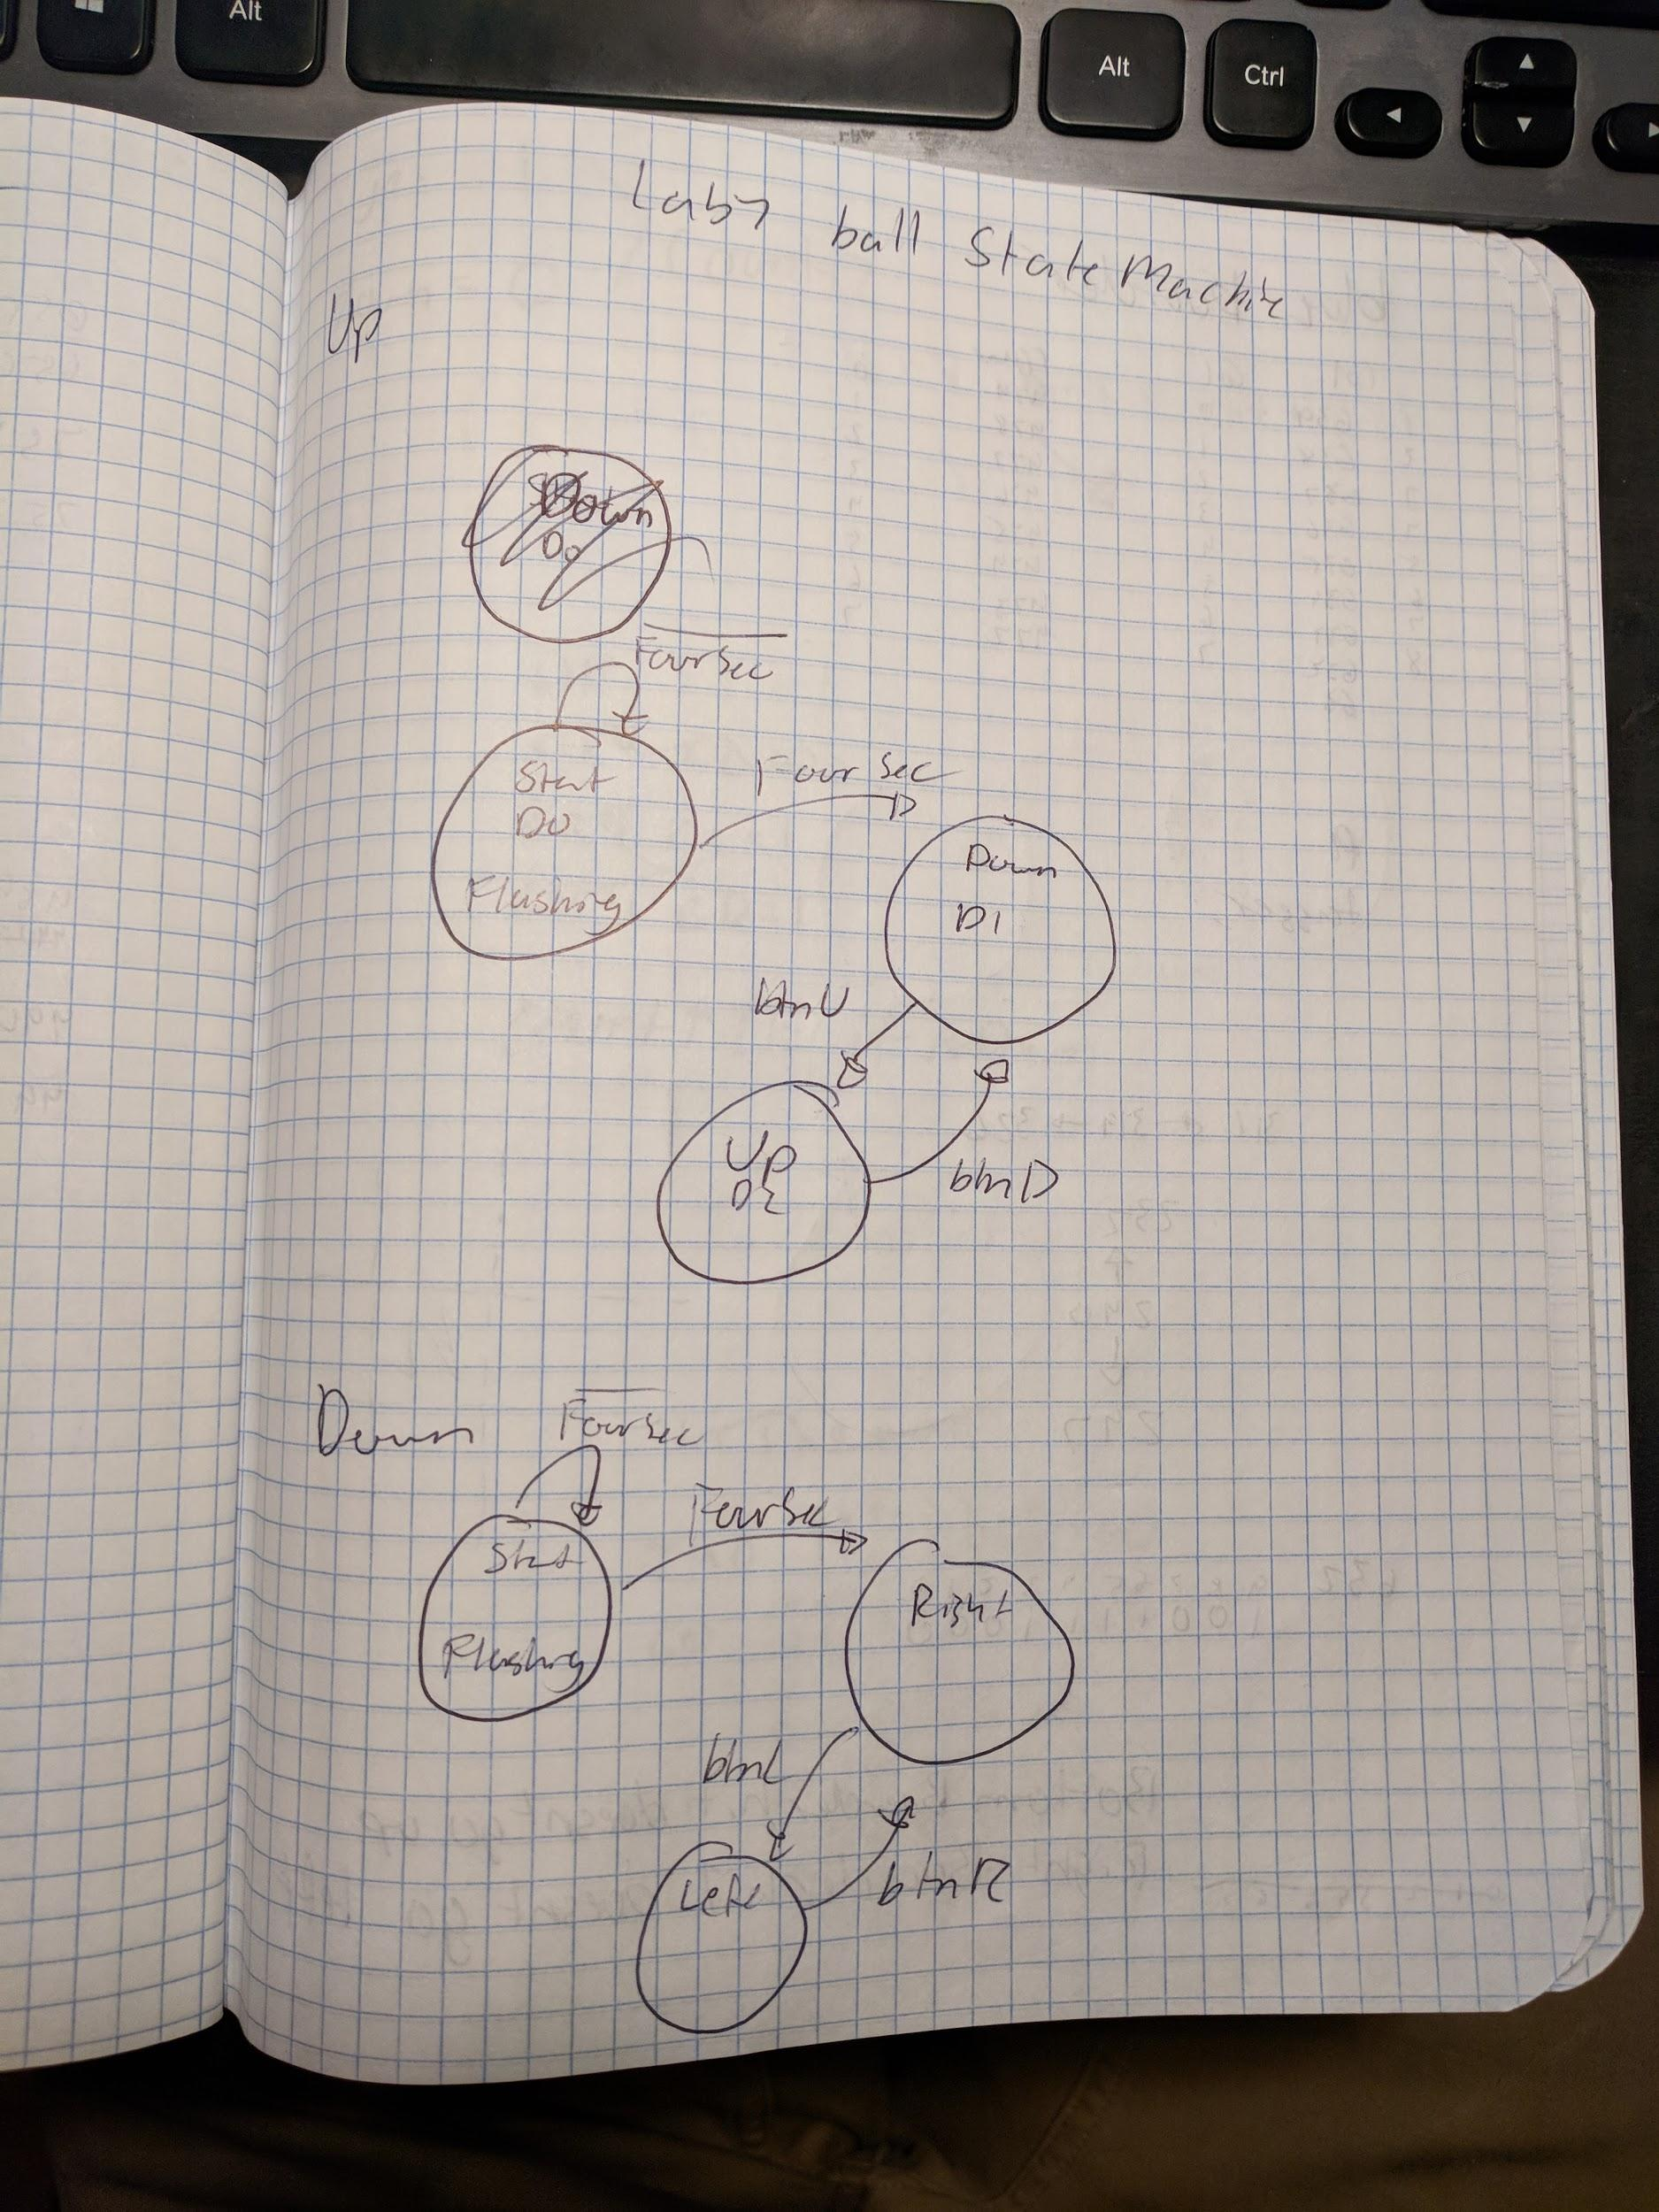 Alt
Alt
Ctrl
Lab7 ball State Machine
Up
Down
D0
FourSec
Start
D0
Flashing
Four Sec
Down
D1
btnU
Up
D2
btnD
Down
FourSec
FourSec
Start
Flashing
Right
btnL
Left
btnR